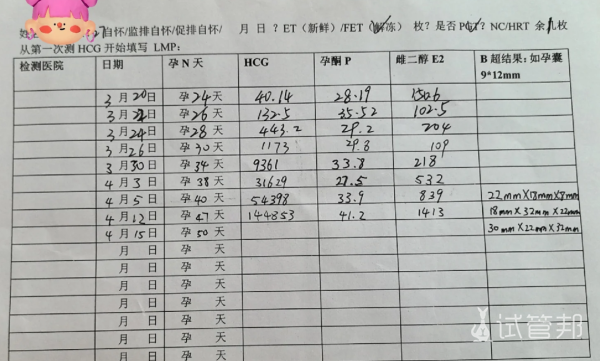 自怀/监排自怀/促排自怀/ 月 日？ET（新鲜）/FET（解冻） 枚？是否 NC/HRT 余 枚
从第一次测 HCG 开始填写 LMP：
检测医院 日期 孕 N 天 HCG 孕酮 P 雌二醇 E2 B 超结果：如孕囊 9*12mm
3 月 20 日 孕 24 天 40.14 28.19
3 月 22 日 孕 26 天 132.5 35.52 102.5
3 月 24 日 孕 28 天 443.2 29.2 204
3 月 26 日 孕 30 天 1173 29.8 109
3 月 30 日 孕 34 天 9361 33.8 218
4 月 3 日 孕 38 天 31629 27.5 532
4 月 5 日 孕 40 天 54398 33.9 839 22mm×18mm×9mm
4 月 12 日 孕 47 天 144853 41.2 1413 18mm×32mm×22mm
4 月 15 日 孕 50 天 30mm×22mm×32mm
月 日 孕 天
月 日 孕 天
月 日 孕 天
月 日 孕 天
月 日 孕 天
月 日 孕 天
试管邦